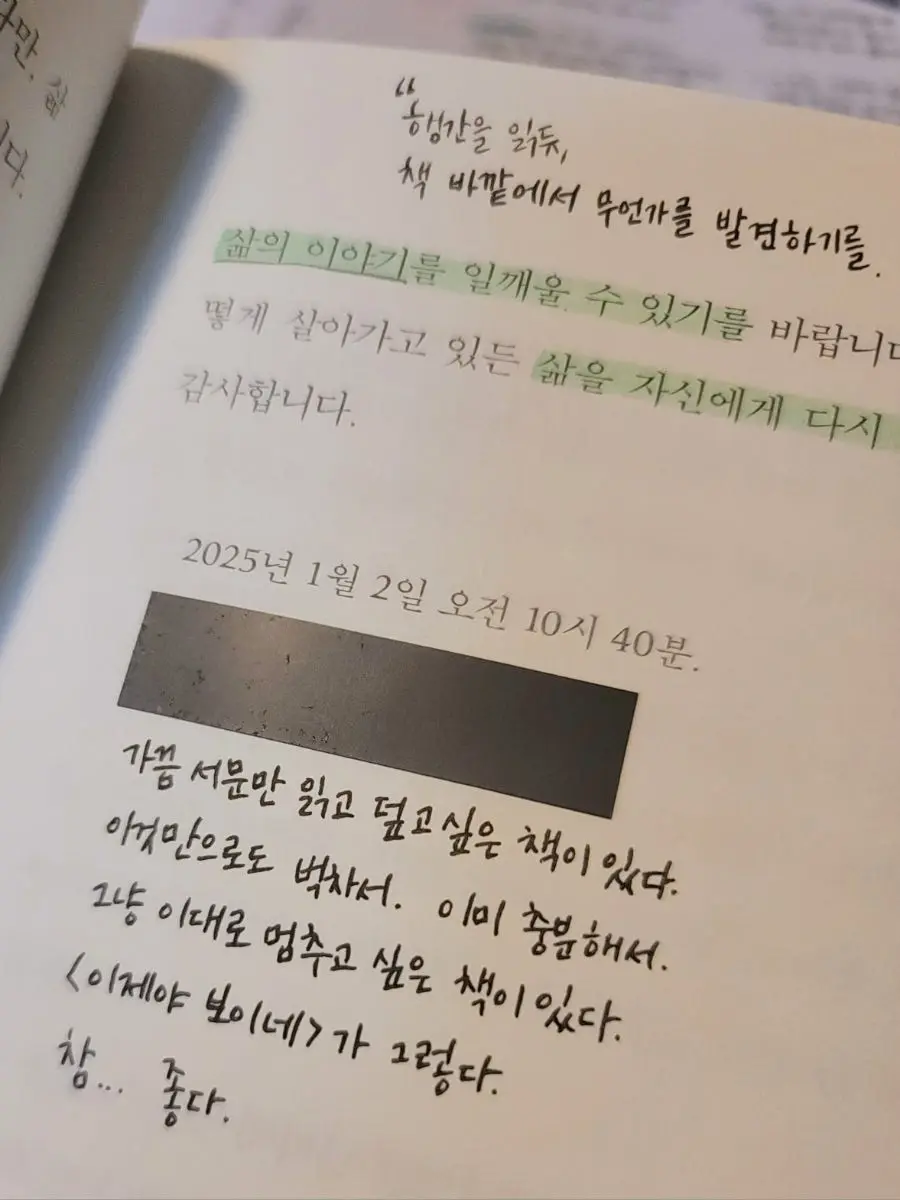 다만, 삶
니다.
“행간을 읽듯,
책 바깥에서 무언가를 발견하기를.
삶의 이야기를 일깨울 수 있기를 바랍니다
떻게 살아가고 있든 삶을 자신에게 다시
감사합니다.
2025년 1월 2일 오전 10시 40분.
가끔 서문만 읽고 덮고싶은 책이 있다.
이것만으로도 벅차서. 이미 충분해서.
그냥 이대로 멈추고 싶은 책이 있다.
<이제야 보이네>가 그렇다.
참... 좋다.